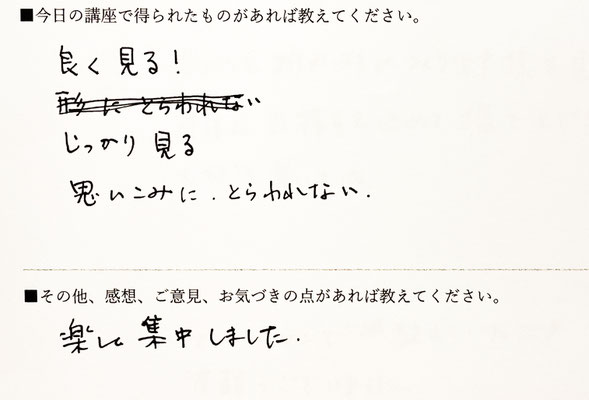 ■今日の講座で得られたものがあれば教えてください。
良く見る!
形にとらわれない
じっかり見る
思いこみに.とらわれない.
■その他、感想、ご意見、お気づきの点があれば教えてください。
楽しく集中しました.